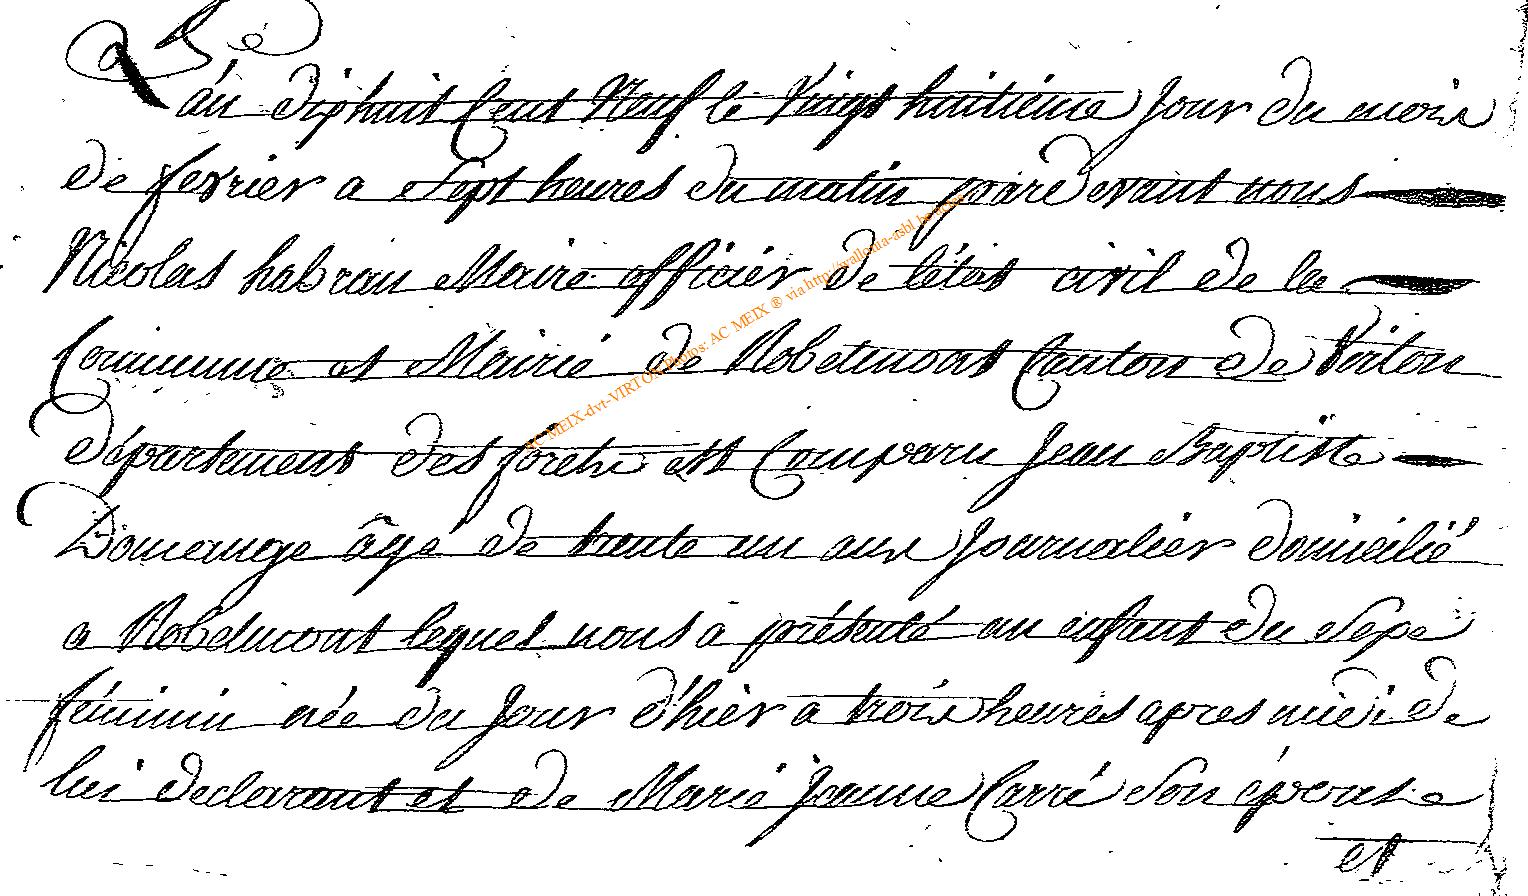 Lan dixhuit Cent Neuf le Vingt huitieme Jour du mois
de fevrier a Sept heures du matin pardevant nous
Nicolas habran Maire officier de l'état civil de la
Commune et Mairie de Robelmont Canton de Virton
département des forêts est Comparu Jean Baptiste
Domange âgé de trente un ans Journalier domicilié
a Robelmont lequel nous a présenté un enfant du Sexe
féminin née du Jour d'hier a trois heures apres midi de
lui declarant et de Marie Jeanne Carré Son épouse
et
AC MEIX-dvt-VIRTON Photos: AC MEIX ® via http://wallonia-asbl.be